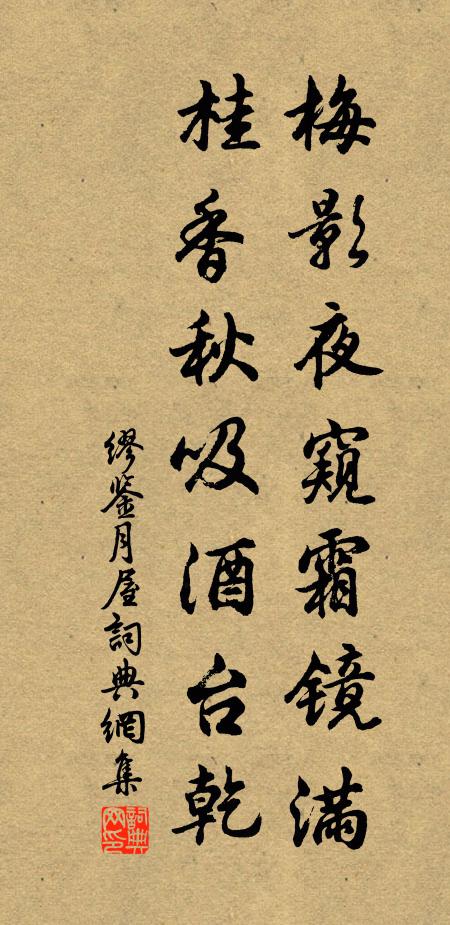 梅影夜窺霜镜满
桂香秋吸酒台乾
缪鉴月屋詞典網集
詞典网印